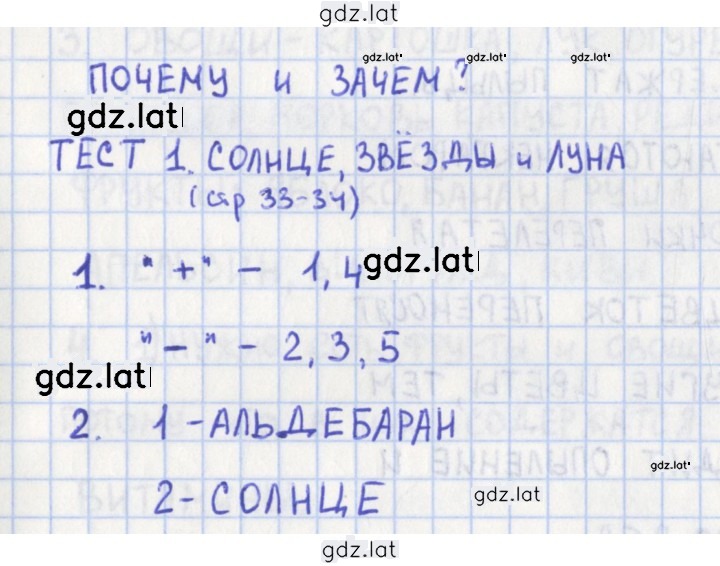 gdz.lat
gdz.lat gdz.lat gdz.lat
ПОЧЕМУ и ЗАЧЕМ?
gdz.lat
ТЕСТ 1. СОЛНЦЕ, ЗВЁЗДЫ и ЛУНА
(стр 33-34)
1. "+" - 1,4 gdz.lat
"-" - 2,3,5
gdz.lat
2. 1-АЛЬДЕБАРАН
gdz.lat
2-СОЛНЦЕ gdz.lat
gdz.lat